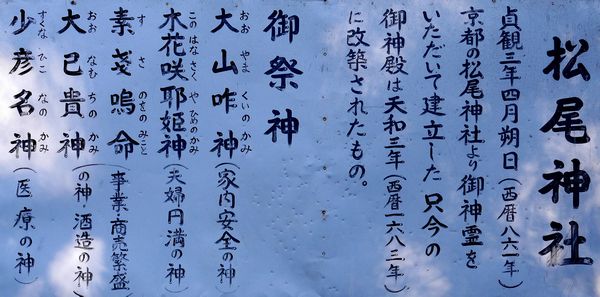 松尾神社
貞観三年四月朔日（西暦八六一年）
京都の松尾神社より御神霊を
いただいて建立した 只今の
御神殿は天和三年（西暦一六八三年）
に改築されたもの。
御祭神
大山咋神（家内安全の神）
おお やま くいの かみ
木花咲耶姫神（夫婦円満の神）
この はな さく や ひめの かみ
素戔嗚命（事業・商売繁盛
す さ のをの みこと
の神・酒造の神）
大己貴神
おお なむ ちの かみ
少彦名神（医療の神）
すくな ひこ なの かみ